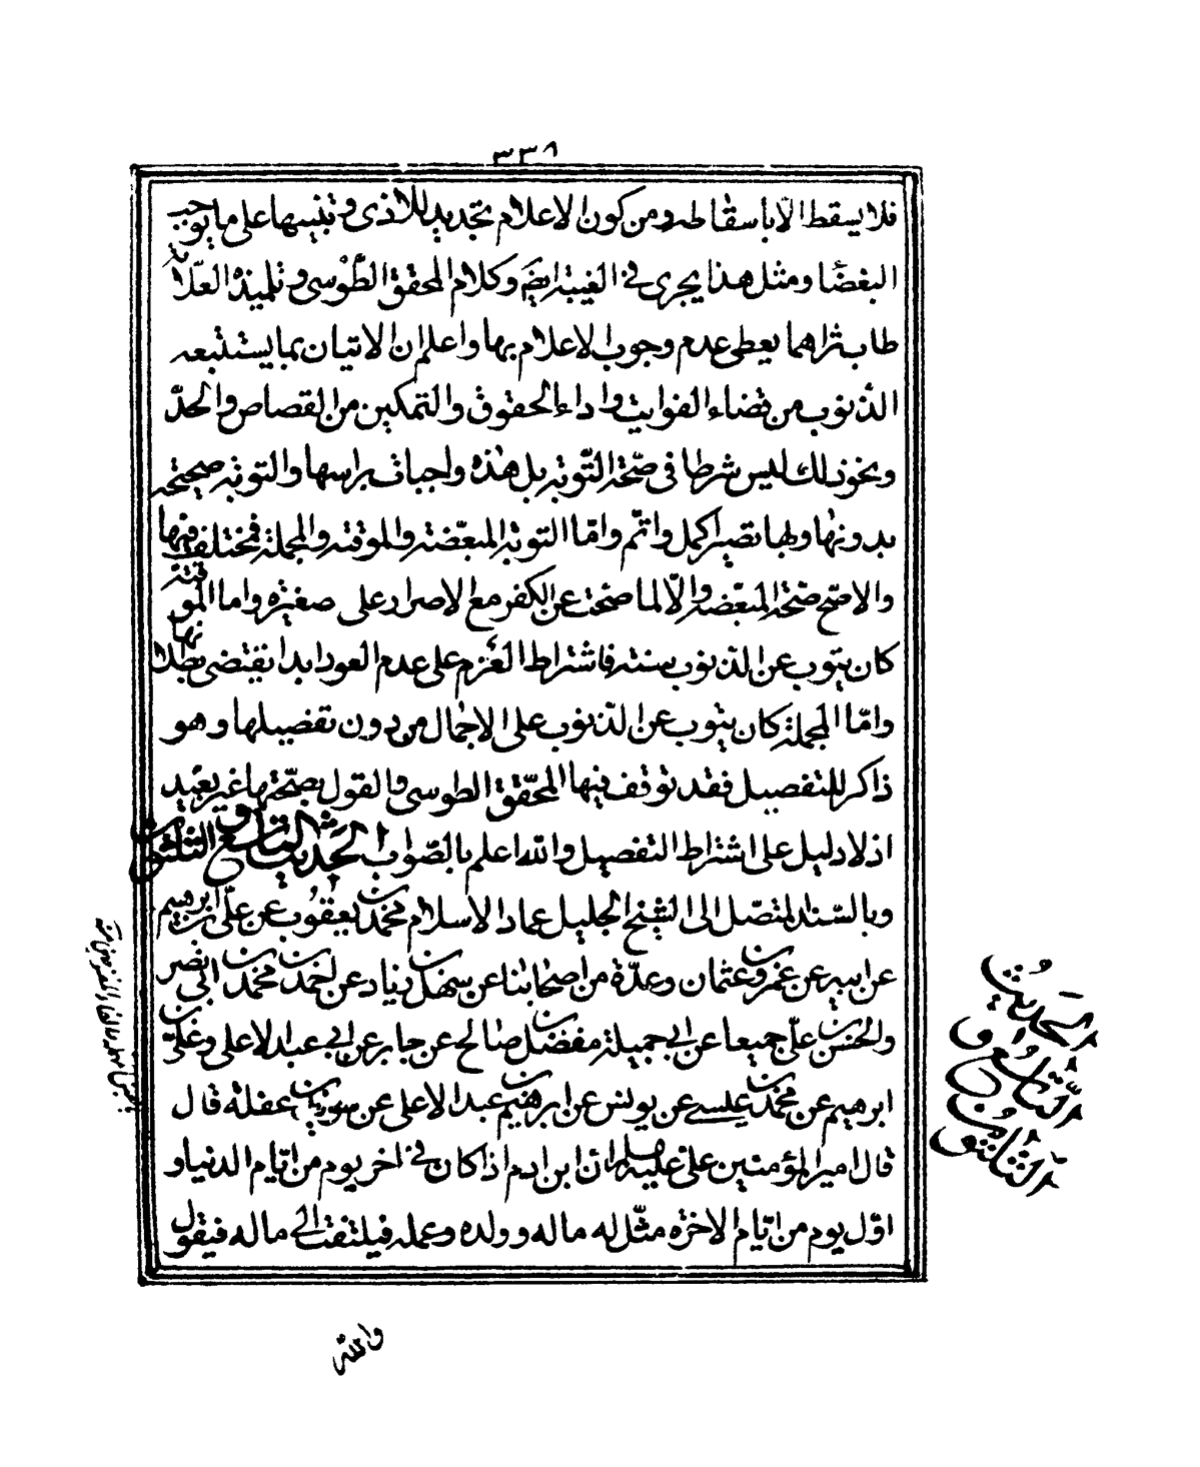 ٣٣٨
فلا يسقط الّا باسقاطه ومن كون الاعلام تجديدا للاذى وتنبيها على ما يوجب
البغضا ومثل هذا يجرى في الغيبة ايض وكلام المحقق الطّوسى وتلميذه العلّامة
طاب ثراهما يعطى عدم وجوب الاعلام بها واعلم ان الاتيان بما يستتبعه
الذنوب من قضاء الفوايت واداء الحقوق والتمكين من القصاص والحدّ
ونحو ذلك ليس شرطا فى صحّة التّوبة بل هذه واجبات براسها والتوبة صحيحة
بدونها وبها تصير اكمل واتم وامّا التوبة المبعّضة والموقتة والمجملة فمختلف فيها
والاصّح صحّة المبعّضة والّا لما صحت عن الكفر مع الاصرار على صغيرة واما الموقتة
كان يتوب عن الذنوب سنة فاشتراط العزم على عدم العود ابدا يقتضى بطلانها
وامّا المجملة كان يتوب عن الذنوب على الاجمال من دون تفصيلها وهو
ذاكر للتفصيل فقد توقف فيها المحّقق الطوسى والقول بصحّتها غير بعيد
اذ لا دليل على اشتراط التفصيل والله اعلم بالصّواب الحديث التاسع والثلثون
وبالسّند المتصّل الى الشيخ الجليل عماد الاسلام محمد بن يعقوب عن علّى بن ابرهيم
عن ابيه عن عمرو بن عثمان وعدّة من اصحابنا عن سهل بن زياد عن احمد بن محمد بن ابى نصر
والحسن بن علّى جميعا عن ابى جميلة مفضل بن صالح عن جابر عن ابى عبد الاعلى وعلى بن
ابرهيم عن محمد بن عيسى عن يونس عن ابرهيم بن عبد الاعلى عن سويد بن غفلة قال
قال امير المؤمنين على عليه السلام ان ابن ادم اذا كان في اخر يوم من ايّام الدنيا و
اوّل يوم من ايّام الاخرة مثّل له ماله وولده وعمله فيلتفت الى ماله فيقول
الحديث
التّاسع و
الثّلثون
والله